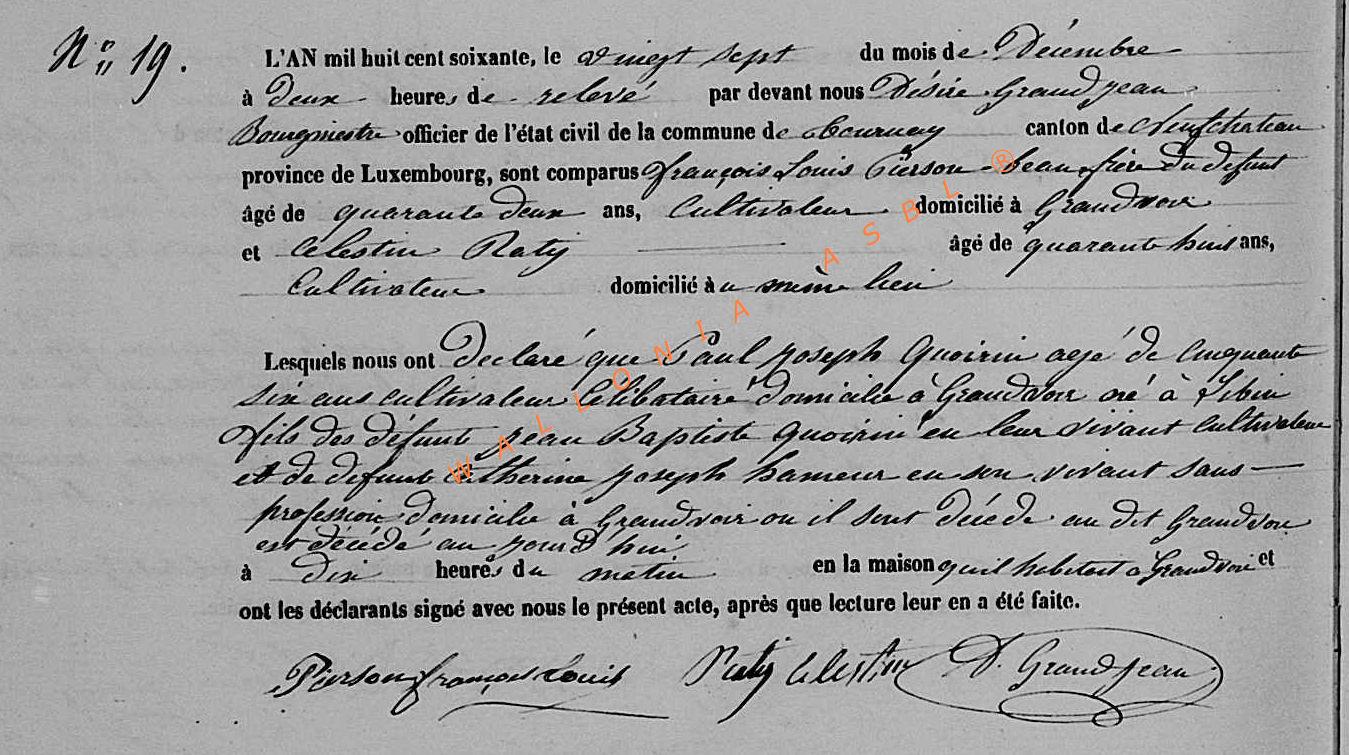 N° 19.
L'AN mil huit cent soixante, le vingt sept du mois de Décembre
à deux heures de relevé par devant nous Désiré Grandjean
Bourgmestre officier de l'état civil de la commune de Tournay canton de Neufchateau
province de Luxembourg, sont comparus françois Louis Pierson Beau frère du defunt
âgé de quarante deux ans, Cultivateur domicilié à Grandvoir
et Celestin Raty âgé de quarante huit ans,
Cultivateur domicilié à u même lieu
Lesquels nous ont Declaré que Paul Joseph Quoirin agé de Cinquante
six ans cultivateur Célibataire domicilie à Grandvoir né à Sibin
fils des défunt Jean Baptiste Quoirin en leur vivant cultivateur
et de defunte Catherine Joseph hameur en son vivant sans
profession domicilie à Grandvoir ou il sont Décéde au dit Grandvoir
est décédé au jourd'hui
à dix heures du matin en la maison qu'il habitait à Grandvoir et
ont les déclarants signé avec nous le présent acte, après que lecture leur en a été faite.
Pierson françois Louis Raty Celestin D. Grandjean
WALLONIA ASBL ®